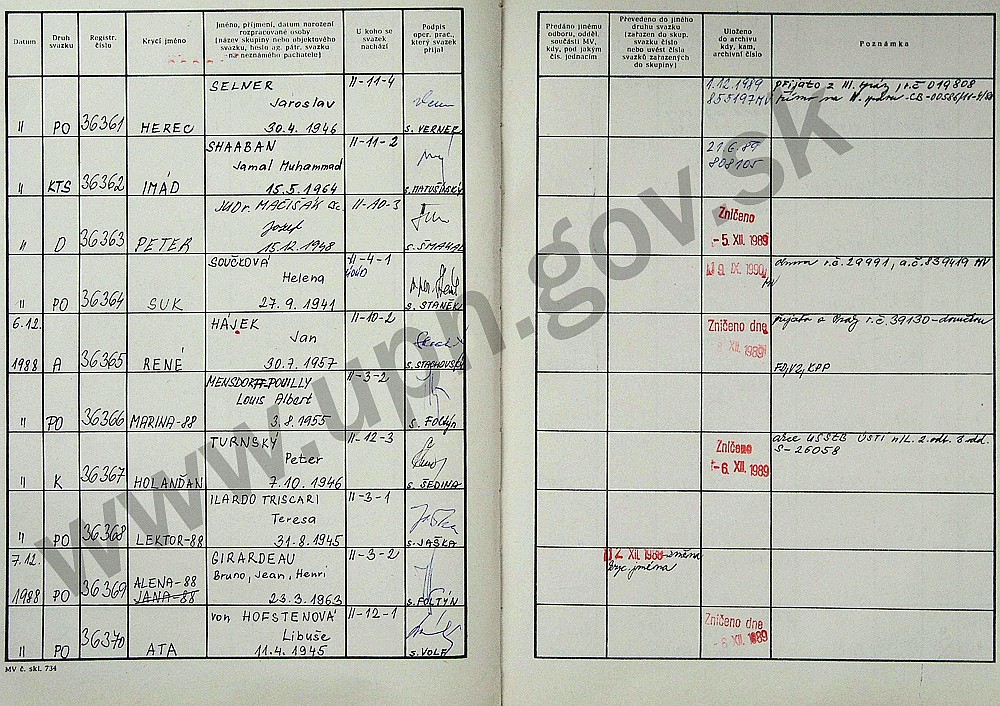 Datum
Druh svazku
Registr. číslo
Krycí jméno
Jméno, příjmení, datum narození
rozpracované osoby
(název skupiny nebo objektového
svazku, heslo ag. pátr. svazku
na neznámého pachatele)
U koho se
svazek
nachází
Podpis
oper. prac.,
který svazek
přijal
Předáno jinému
odboru, odděl.
součásti MV,
kdy, pod jakým
čís. jednacím
Převedeno do jiného
druhu svazku
(zařazen do skup.
svazku číslo
nebo uvést číslo
svazků zařazených
do skupiny)
Uloženo
do archivu
kdy, kam,
archivní číslo
Poznámka
SELNER II-11-4 1.12.1989 přijato z III. , r.č 019808
Jaroslav 855197MV
" PO 36361 HEREC 30.4. 1946 s. VERNER
SHAABAN II-11-2 21.6.89
Jamal Muhammad 808105
" KTS 36362 IMÁD 15.5.1964 s. MATUŠINSKÝ
JUDr. MAČIŠÁK Sc. II-10-3 Zničeno
Jozef
" D 36363 PETER 15.12.1948 s. ŠMAHAL -5. XII. 1989
SOUČKOVÁ II-4-1 IX. 1990 r.č. 29991, a.č. 839419 MV
Helena MV
" PO 36364 SUK 27.9.1941 s. STANĚK
6.12. HÁJEK II-10-2 Zničeno dne r.č. 39130-
Jan XII. 1989
1988 A 36365 RENÉ 30.7.1957 s. STACHOVSKÝ
MENSDORFF-POUILLY II-3-2
Louis Albert
" PO 36366 MARINA-88 3.8.1955 s. FOLTÝN
TURNSKÝ II-12-3 Zničeno ÚSTÍ n/L. 2. odb. 3. odd.
Peter -6. XII. 1989 S-26058
" K 36367 HOLANĎAN 7.10.1946 s. ŠEDINA
ILARDO TRISCARI II-3-1
Teresa
" PO 36368 LEKTOR-88 31.8.1945 s. JAŠKA
7.12. GIRARDEAU II-3-2 12. XII. 1988 změna
ALENA-88 Bruno, Jean, Henri kryc. jména
1988 PO 36369 JANA-88 23.3.1963 s. FOLTÝN
von HOFSTENOVÁ II-12-1 Zničeno dne
Libuše XII. 1989
" PO 36370 ATA 11.4.1945 s. VOLF
MV č. skl. 734
www.upn.gov.sk